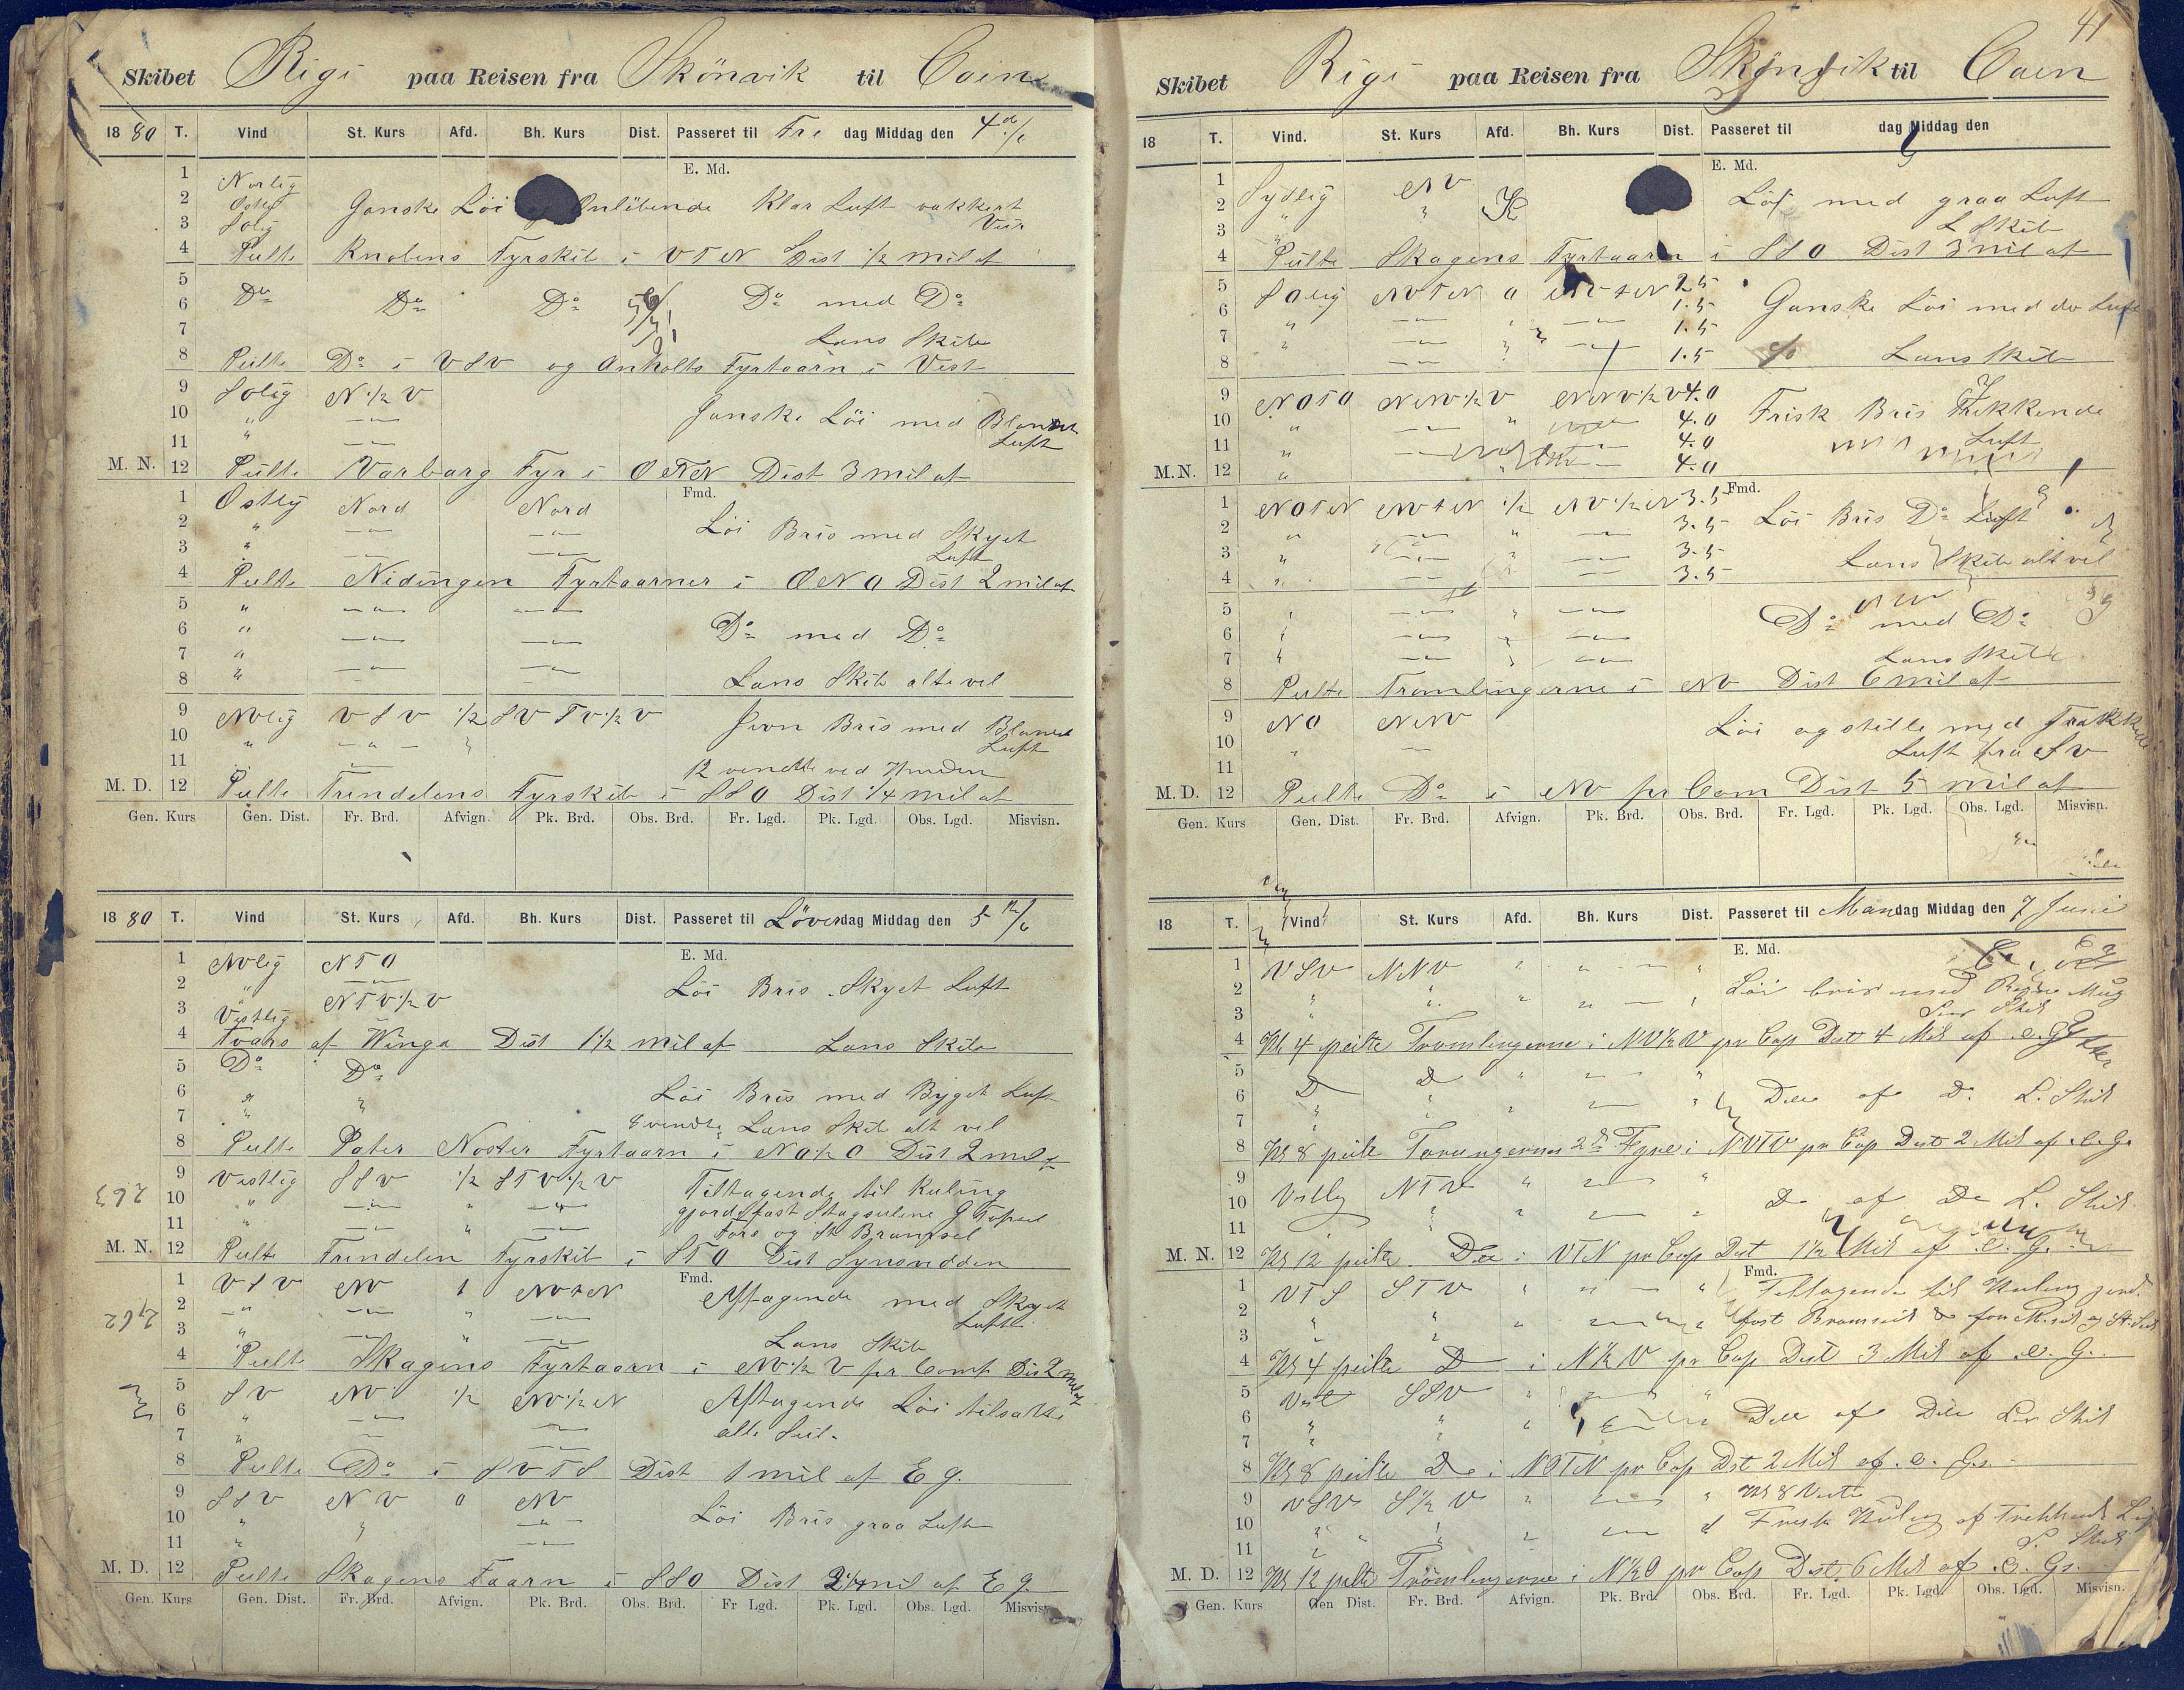 Skibet Rigi paa Reisen fra Skönvik til Caen
18 80 T. Vind St. Kurs Afd. Bh. Kurs Dist. Passeret til Fre dag Middag den 4de/6
E. Md.
1 Norlig
2 Ostlig Ganske Löi Omlöbende Klar Luft vakkert
3 Solig Veir
4 Peilte Knobens Fyrskib i VTN Dist 1/2 mil af
5
6 Do Do Do Do med Do
7 Lans Skibe
8 Peilte Do i VSV og Anholts Fyrtaarn i Vest
9 Solig N 1/2 V
10 " —"— Ganske Löi med Blandet
11 " —"— Luft
M. N. 12 Peilte Varbarg Fyr i OTN Dist 3 mil af
Fmd.
1 Ostlig Nord Nord
2 " —"— —"— Löi Bris med Skyet
3 " —"— —"— Luft
4 Peilte Nidingen Fyrtaarner i ONO Dist 2 mil af
5 " —"— —"—
6 " —"— —"— Do med Do
7 "
8 " —"— —"— Lans Skib alt vel
9 NVlig VSV 1/2 SVTV 1/2 V Jevn Bris med Blandet
10 " —"— Luft
11 12 vendte ved Hunden
M. D. 12 Peilte Trindelens Fyrskib i SSO Dist 1/4 mil af
Gen. Kurs Gen. Dist. Fr. Brd. Afvign. Pk. Brd. Obs. Brd. Fr. Lgd. Pk. Lgd. Obs. Lgd. Misvisn.
18 80 T. Vind St. Kurs Afd. Bh. Kurs Dist. Passeret til Löverdag Middag den 5te/6
E. Md.
1 NVlig NTO
2 " —"— Löi Bris Skyet Luft
3 Vestlig NTV 1/2 V
4 Tvars af Winga Dist 1 1/2 mil af Lans Skibe
5 Do Do
6 " " Löi Bris med Byget Luft
7 " 8 vendte Lans Skib alt vel
8 Peilte Pater Noster Fyrtaarn i NO 1/2 O Dist 2 mil af
9 Vestlig SSV 1/2 STV 1/2 V Tiltagende til Kuling
263
10 " —"— " —"— gjorde fast Stagseilene G Topseil
11 " —"— " —"— Fore og St Bramseil
M. N. 12 Peilte Trindelen Fyrskib i STO Dist Synsvidden
Fmd.
1 VSV NV 1 NVTN Aftagende med Skyet
262
2 —"— —"— " —"— Luft
3 " —"— " —"— Lans Skib
4 Peilte Skagens Fyrtaarn i NV 1/2 V pr Comp Dis 2 mil af
5 SV NV 1/2 NV 1/2 N Aftagende Löi tilsatte
6 " —"— —"— alle Seil.
7 " —"— —"—
8 Peilte Do i SVTS Dist 1 mil af E g.
9 SSV NV 0 NV
10 " " —"— Löi Bris graa Luft
11 " —"—
M. D. 12 Peilte Skagens Taarn i SSO Dist mil af E g.
Gen. Kurs Gen. Dist. Fr. Brd. Afvign. Pk. Brd. Obs. Brd. Fr Lgd. Pk. Lgd. Obs. Lgd. Misvisn.
41
Skibet Rigi paa Reisen fra Skönvik til Caen
18 T. Vind. St. Kurs Afd. Bh. Kurs Dist. Passeret til dag Middag den
E. Md.
1 Sydlig NV
2 " " Löi med graa Luft
3 " L Skib
4 Peilte Skagens Fyrtaarn i SSO Dist 3 mil af
5 Solig NVTN 0 NVTN 2.5
6 " —"— " —"— 1.5 Ganske Löi med do Luft
7 " —"— " —"— 1.5
8 " —"— " —"— 1.5 Lans Skib
9 NOTO NNV 1/2 V NNV 1/2 V 4.0
10 " —"— " 4.0 Frisk Bris Trekkende
11 " —"— 4.0 Luft
M. N. 12 " 4.0
Fmd.
1 NOTN NVTN 1/2 NV 1/2 N 3.5
2 " —"— " —"— 3.5 Löi Bris Do Luft
3 " —"— " —"— 3.5
4 " —"— " —"— 3.5 Lans Skib alt vel
5 " —"— " —"—
6 " —"— " —"— Do med Do
7 " —"— " —"— Lans Skib
8 Peilte Tromlingerne i NV Dist 6 mil af
9 NO NNV Löi og stille med Trækkende
10 " —"— Luft fra SV
11
M. D. 12 Peilte Do i NV pr Com Dist 5 mil af
Gen. Kurs Gen. Dist. Fr. Brd. Afvign. Pk. Brd. Obs. Brd. Fr. Lgd. Pk. Lgd. Obs. Lgd. Misvisn.
18 T. Vind St. Kurs Afd. Bh. Kurs Dist. Passeret til Mandag Middag den 7 Juni
E. Md.
1 VSV NNV " " — "
2 " " " " — " Löi bris med Regn
3 " Skib
4 Kl 4 peilte Tromlingerne i NV 1/2 V pr Cop Dist 4 Mil af e. G
5 D D " "
6 " " " " Do af D. L. Skib
7 "
8 Kl 8 peilte Torungernes 2de Fyre i NVTV pr Cop Dist 2 Mil af e. G.
9 Vstlig NTV " "
10 " " " D af De L. Skib
11
M. N. 12 Kl 12 peilte Do i VTN pr Cop Dist 1 1/2 Mil af e. G.
Fmd.
1 VTS STV " " — " Tiltagende til Kuling gjord
2 " " " " fast Bramseil
3 " "
4 Kl 4 peilte D i N 1/2 V pr Cop Dist 3 Mil af e. G.
5 Vest SSV " "
6 " " " " Do af Do Skib
7 " "
8 Kl 8 peilte Do i NOTN pr Cop Dst 2 Mil af e. G.
9 VSV S 1/2 V " " Kl 8 Vendte
10 " " " " Frisk Kuling af Trekkende
11 " " Skib
M. D. 12 Kl 12 peilte Trömlingerne i N 1/2 O pr Cop Dist. 6 Mil af e. G.
Gen. Kurs Gen Dist. Fr. Brd. Afvign. Pk. Brd. Obs. Brd. Fr. Lgd. Pk. Lgd. Obs. Lgd. Misvisn.